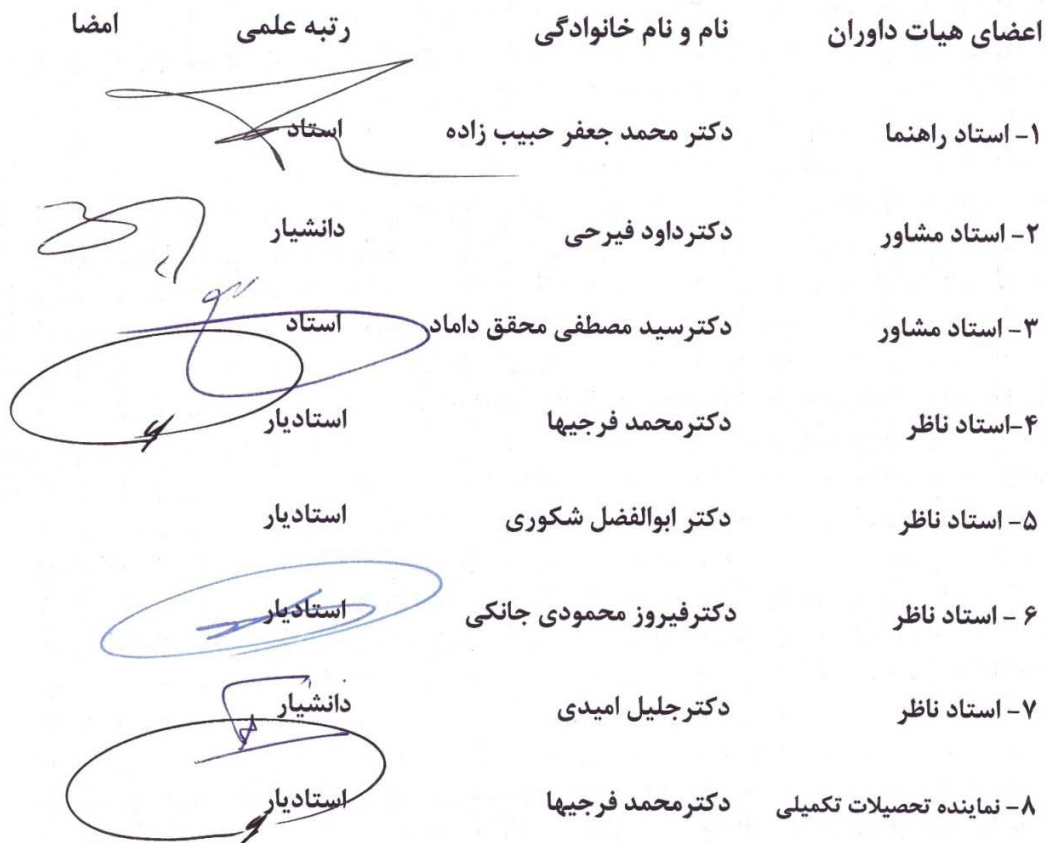 اعضای هیات داوران نام و نام خانوادگی رتبه علمی امضا
۱- استاد راهنما دکتر محمد جعفر حبیب زاده استاد
۲- استاد مشاور دکترداود فیرحی دانشیار
۳- استاد مشاور دکترسید مصطفی محقق داماد استاد
۴-استاد ناظر دکترمحمد فرجیها استادیار
۵- استاد ناظر دکتر ابوالفضل شکوری استادیار
۶ - استاد ناظر دکترفیروز محمودی جانکی استادیار
۷- استاد ناظر دکترجلیل امیدی دانشیار
۸- نماینده تحصیلات تکمیلی دکترمحمد فرجیها استادیار